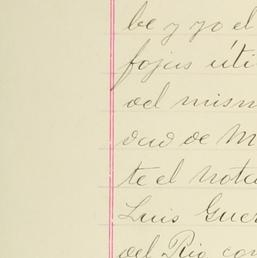 be y yo el
fojas úti
del mism
dad de M
te el nota
Luis Guer
del Rio con